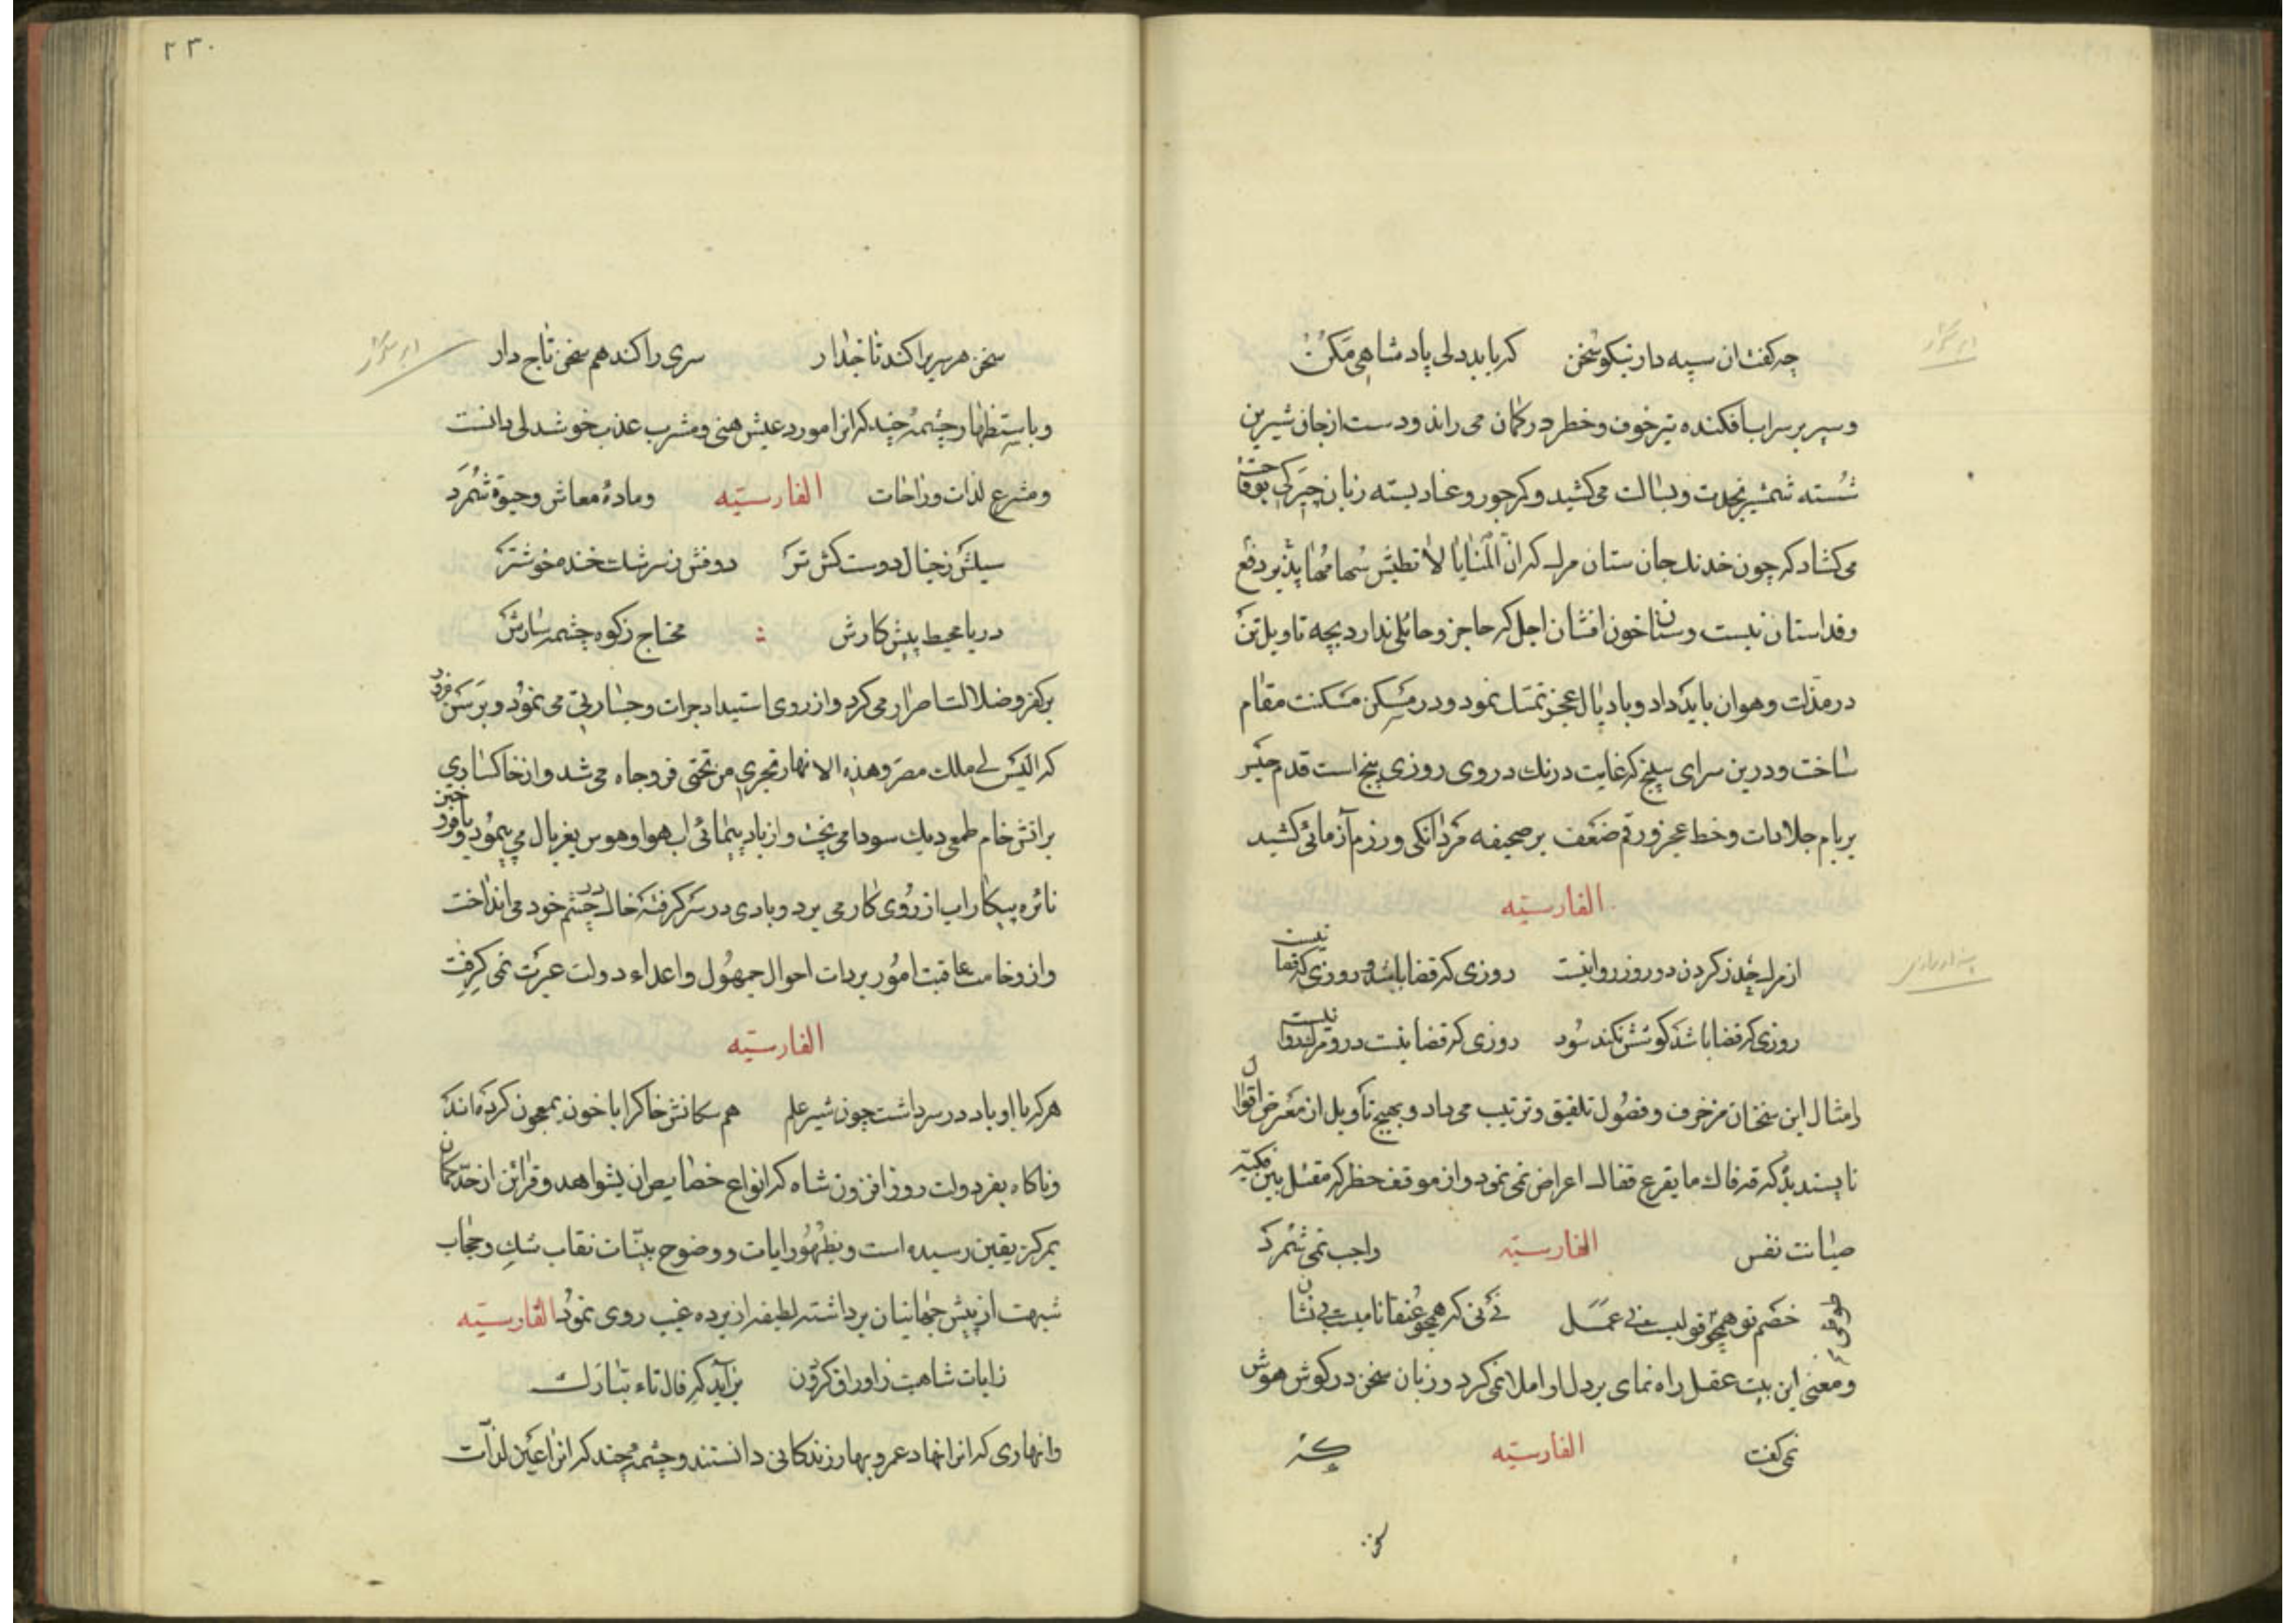 چه كفت ان سپه دار نیكو سخن كه با بددلی پادشاهی مكن
و سپر بر سر اب افكنده تیر خوف و خطر در كمان می راند و دست از جان شیرین
شسته شمشیر نجدت و بسالت می كشید و كرجور وغا دبسته زبان
می كشاد كه چون خدنك جان ستان مرك كه ان المنایا لا تطیش سهامها پذیر دفع
و فدا ستان نیست و سنان خون افشان اجل كه حاجز و حائلی ندارد بچه تاویل تن
در مذلت و هوان باید داد و باذیال عجز تمسك نمود و در مسكن مسكنت مقام
ساخت و درین سرای سپنج كه غایت درنك در وی روزی پنج است قدم
بر بام جلادات و خط عجز و رقم ضعف بر صحیفه مردانكی و رزم آزمائی كشید
الفارسیه
از مرك حذر كردن دو روز روا نیست روزی كه قضا باشد و روزی كه قضا نیست
روزی كه قضا باشد كوشش نكند سود روزی كه قضا نیست درو مرك روا نیست
امثال این سخنان مزخرف و فصول تلفیق و ترتیب می داد و بهیچ تأویل از معرض اقوال
ناپسندیده كه قه فاك ما یقرع قفاك اعراض نمی نمود و از موقف خطر كه
صیانت نفس الفارسیه واجب نمی شمرد
خصم تو همچو قولیست بی عمل نی نی كه همچو عنقا نامیست بی نشان
و معنی این بیت عقل راه نمای بر دل او املا نمی كرد و زبان سخن در كوش هوش
نمی كفت الفارسیه كه
سخن
۲۳۰
سخن هر سریرا كند تاجدار سری را كند هم سخن تاج دار
و باستظهار چشمهٔ چند كه انرا مورد عیش هنی و مشرب عذب خوشدلی دانست
و مشرع لذات و راحات الفارسیه و مادهٔ معاش و حیوة شمرد
سیلش ز خیال دوست كش تر دوفش ز سرشك خنده خوشتر
دریا محیط پیش كارش محتاج زكوه چشمه سارش
بر كفر و ضلالت اصرار می كرد و از روی استبداد جرات و جسارتی می نمود و برسن غرور
كه الیس لی ملك مصر و هذه الانهار تجری من تحتی فرو جاه می شد و از خاكساری
بر اتش خام طمعی دیك سودا می پخت و از باد پیمائی اب هوا و هوس بغربال می پیمود و با
نائره پیكار اب از روی كار می برد و بادی در سر كرفته خاك در چشم خود می انداخت
و از وخامت عاقبت امور بردات احوال جمهول و اعداء دولت عبرت نمی كرفت
الفارسیه
هر كه با او باد در سر داشت چون شیر علم هم سكانش خاك را با خون معجون كرده اند
و ناكاه بفر دولت روز افزون شاه كه انواع خصایص ان بشواهد و قرائن از حد كمان
بمركز یقین رسیده است و بظهور ایات و وضوح بینات نقاب شك و حجاب
شبهت از پیش جهانیان برداشته لطیفه از پرده غیب روی نمود الفارسیه
ز ایات شاهیت ز اوراق كردون بر آید كه فال تاء تبارك
وانهاری كه انرا انهاد عمر و بهار زندكانی دانستند و چشمهٔ چند كه انرا عین لذات